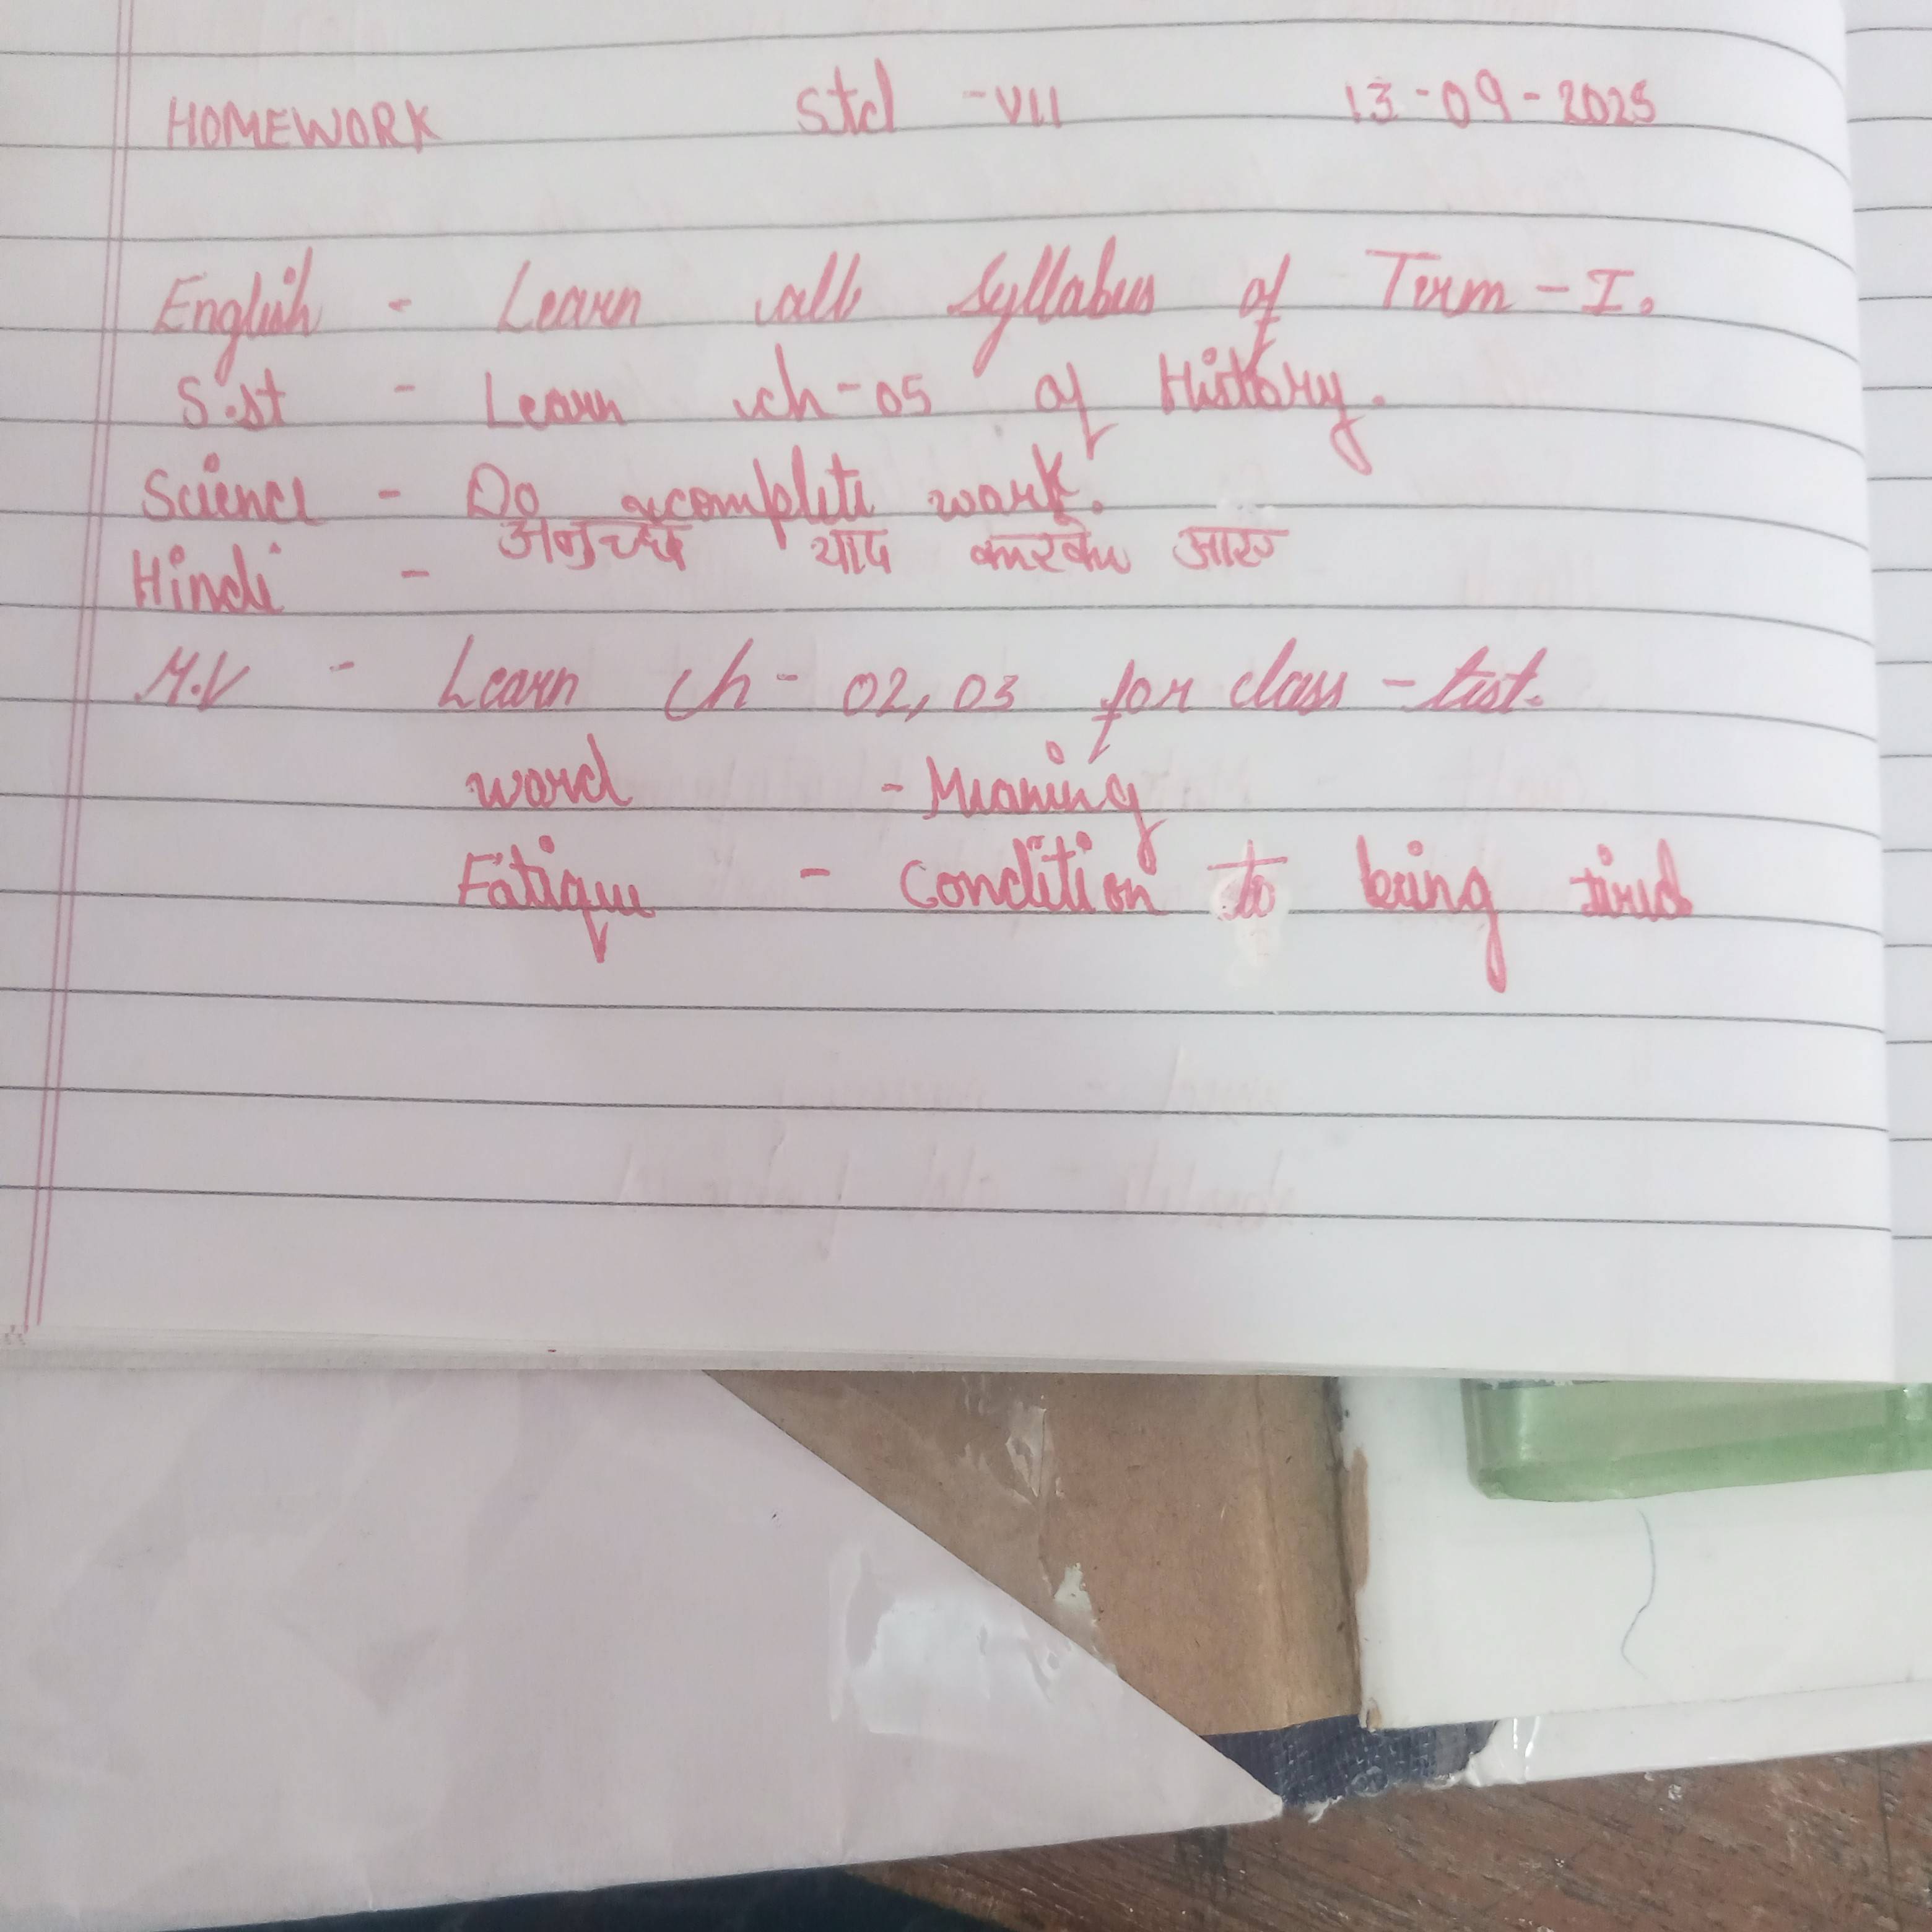 HOMEWORK Std - VII 13-09-2025
English - Learn all syllabus of Term - I.
S.st - Learn ch-05 of History.
Science - Do complete work.
Hindi - अनुच्छेद याद करके आए
M.V - Learn ch - 02, 03 for class - test.
word - Meaning
Fatigue - Condition to being tired